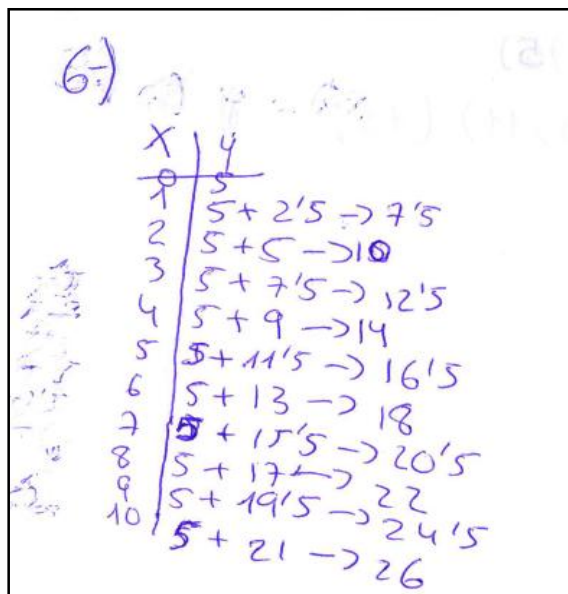 6-)
X | y
0 | 5
1 | 5 + 2'5 -> 7'5
2 | 5 + 5 -> 10
3 | 5 + 7'5 -> 12'5
4 | 5 + 9 -> 14
5 | 5 + 11'5 -> 16'5
6 | 5 + 13 -> 18
7 | 5 + 15'5 -> 20'5
8 | 5 + 17 -> 22
9 | 5 + 19'5 -> 24'5
10 | 5 + 21 -> 26